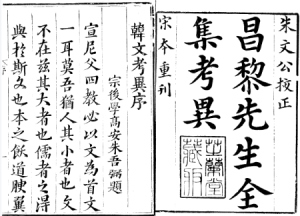 朱文公校正
昌黎先生全
集考異
宋本重刊
韓文考異序
宗後學高安朱吾弼題
宣尼父四教必以文為首文
一耳莫吾猶人其小者也文
不在茲其大者也儒者之得
與於斯文也本之飲道腴翼